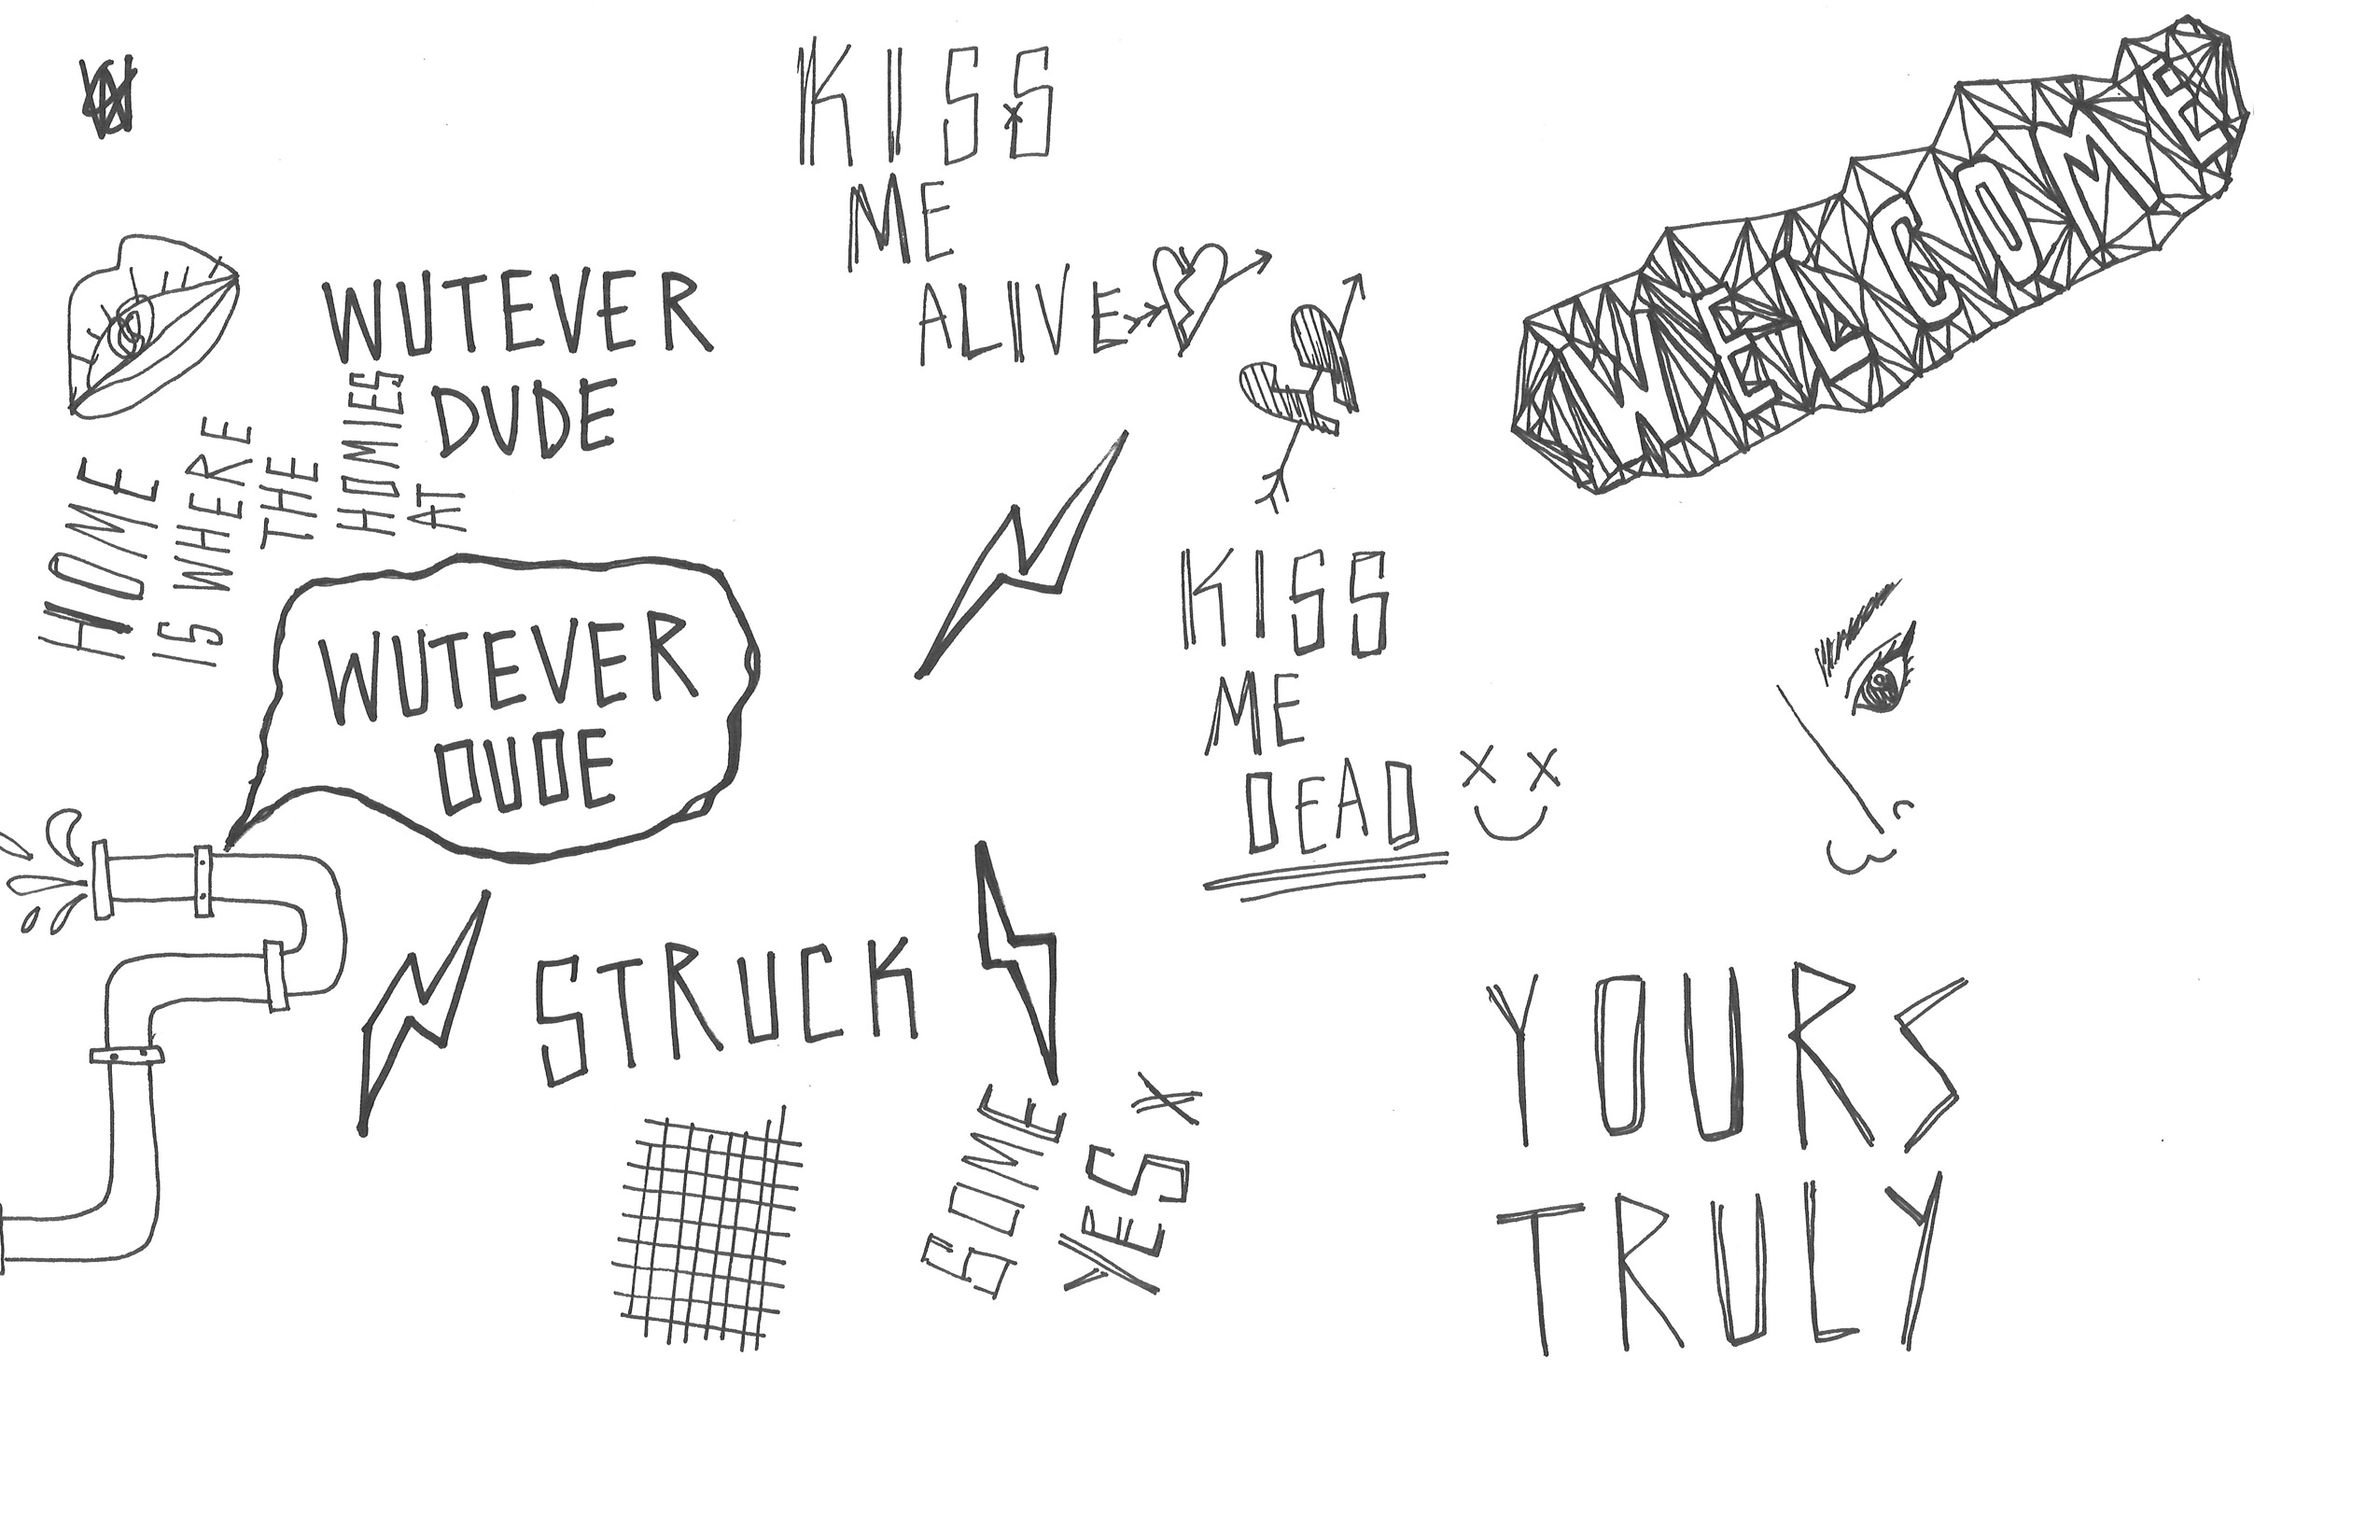 KISS
ME
ALIVE
WELCOME
WUTEVER
DUDE
HOME
IS WHERE
THE
HOMIES
AT
WUTEVER
DUDE
KISS
ME
DEAD
STRUCK
SOME
YES X
YOURS
TRULY